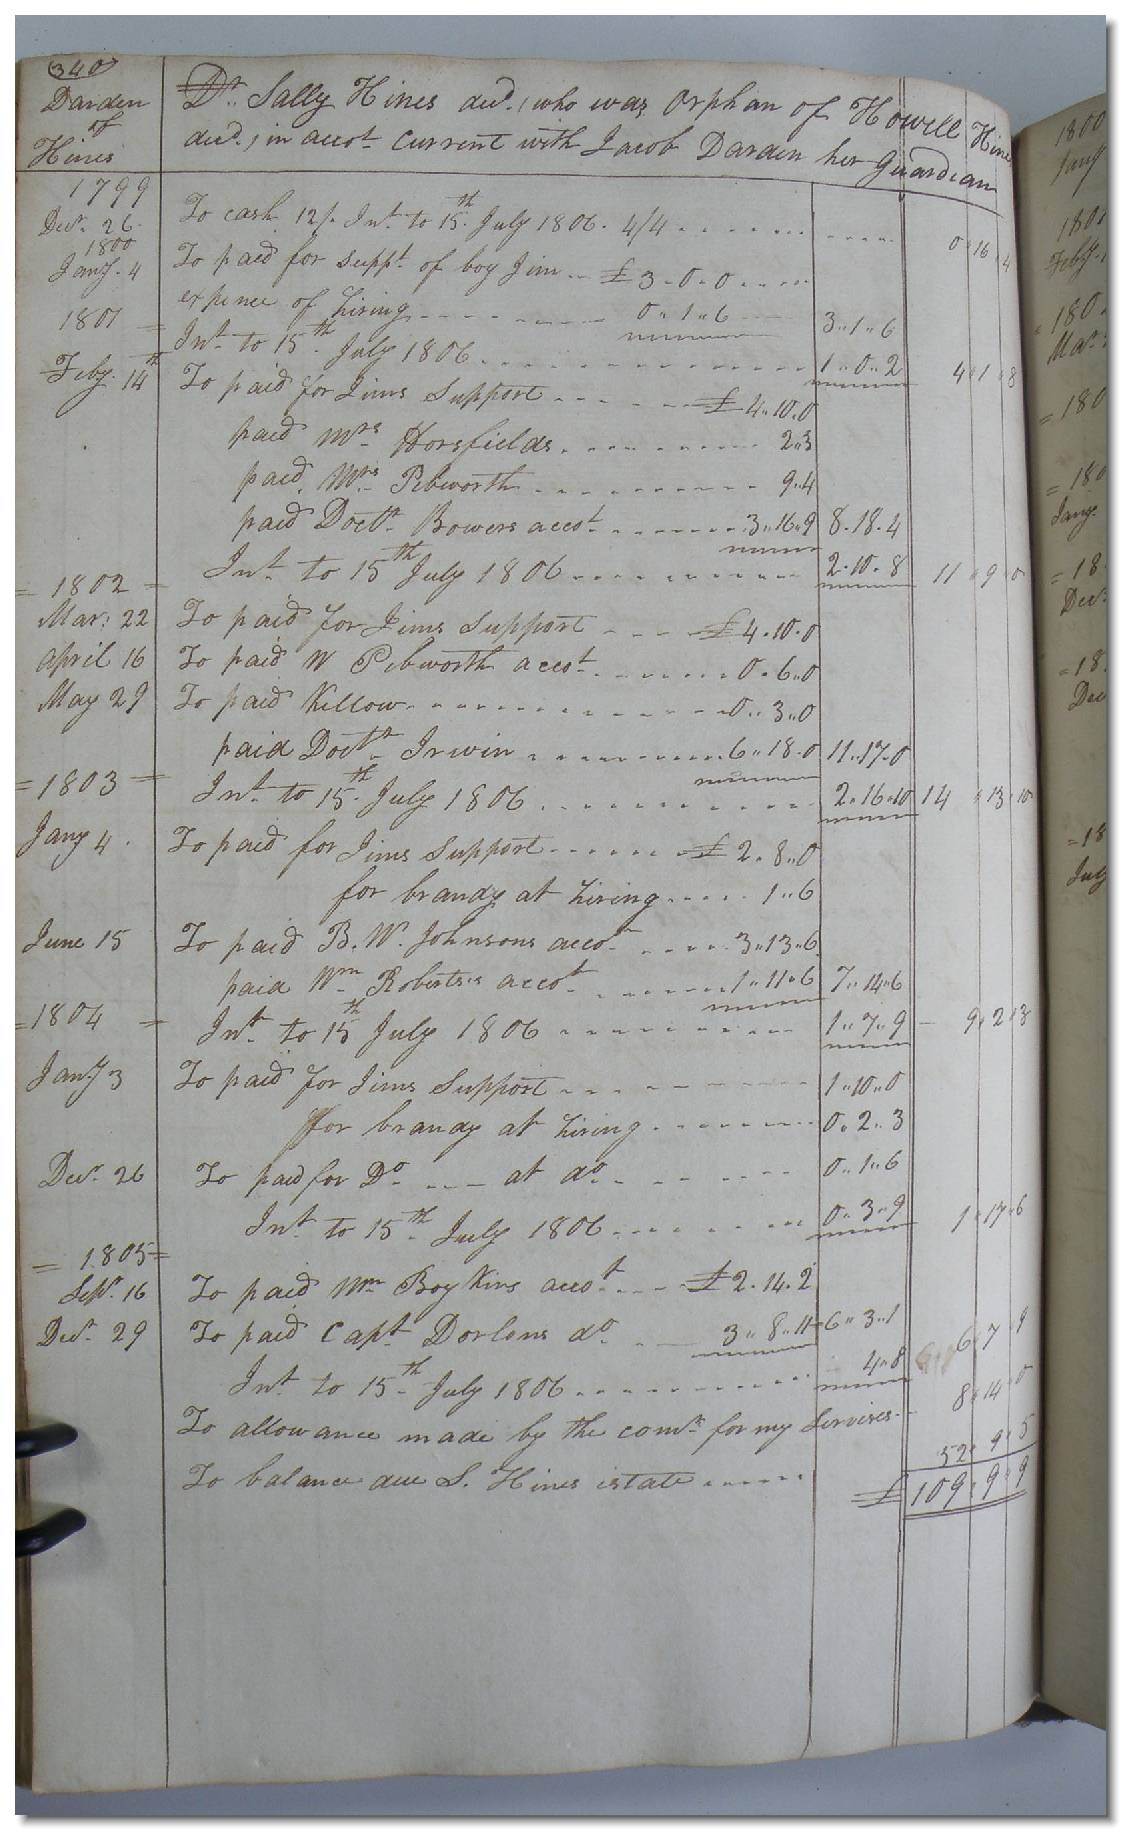 340
Darden of Hines
Dr. Sally Hines decd., who was Orphan of Howell Hines
decd., in accot. Current with Jacob Darden her Guardian
1799
Decr. 26. To cash 12/. Int. to 15th. July 1806. 4/4 0 16 4
1800
Jany. 4 To paid for suppt. of boy Jim £3.0.0
expence of hiring 0.1.6 3.1.6
Int. to 15th. July 1806 1.0.2 4 1 8
1801
Feby. 14th To paid for Jims Support £4.10.0
paid Mrs. Horsfields 2.3
paid Mrs. Pebworth 9.4
paid Doctr. Bowers accot. 3.16.9 8.18.4
Int. to 15th July 1806 2.10.8 11 9 0
=1802=
Mar: 22 To paid for Jims Support £4.10.0
April 16 To paid W Pebworth accot. 0.6.0
May 29 To paid Killow 0.3.0
paid Doctr. Irwin 6.18.0 11.17.0
Int. to 15th. July 1806 2.16.10 14 13 10
=1803=
Jany 4. To paid for Jims Support £2.8.0
for brandy at hiring 1.6
June 15 To paid B. W. Johnsons accot. 3.13.6
paid Wm. Roberts's accot. 1.11.6 7.14.6
Int. to 15th July 1806 1.7.9 9 2 3
=1804=
Jany 3 To paid for Jims Support 1.10.0
for brandy at hiring 0.2.3
Decr. 26 To paid for Do. at do. 0.1.6
Int. to 15th July 1806 0.3.9 1 17 6
=1805=
Sepr. 16 To paid Wm Boykins accot. £2.14.2
Decr. 29 To paid Capt Dorlons do. 3.8.11 6.3.1
Int. to 15th. July 1806 4.8 6 7 9
To allowance made by the comrs. for my Services 8 14 0
To balance due S. Hines estate 52 9 5
£109 9 9
1800
Jany
1801
Feby.
180
Mar.
=180
=180
Jany.
=18
Decr.
=18
Dec
=18
July